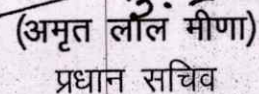 (अमृत लाल मीणा)
प्रधान सचिव